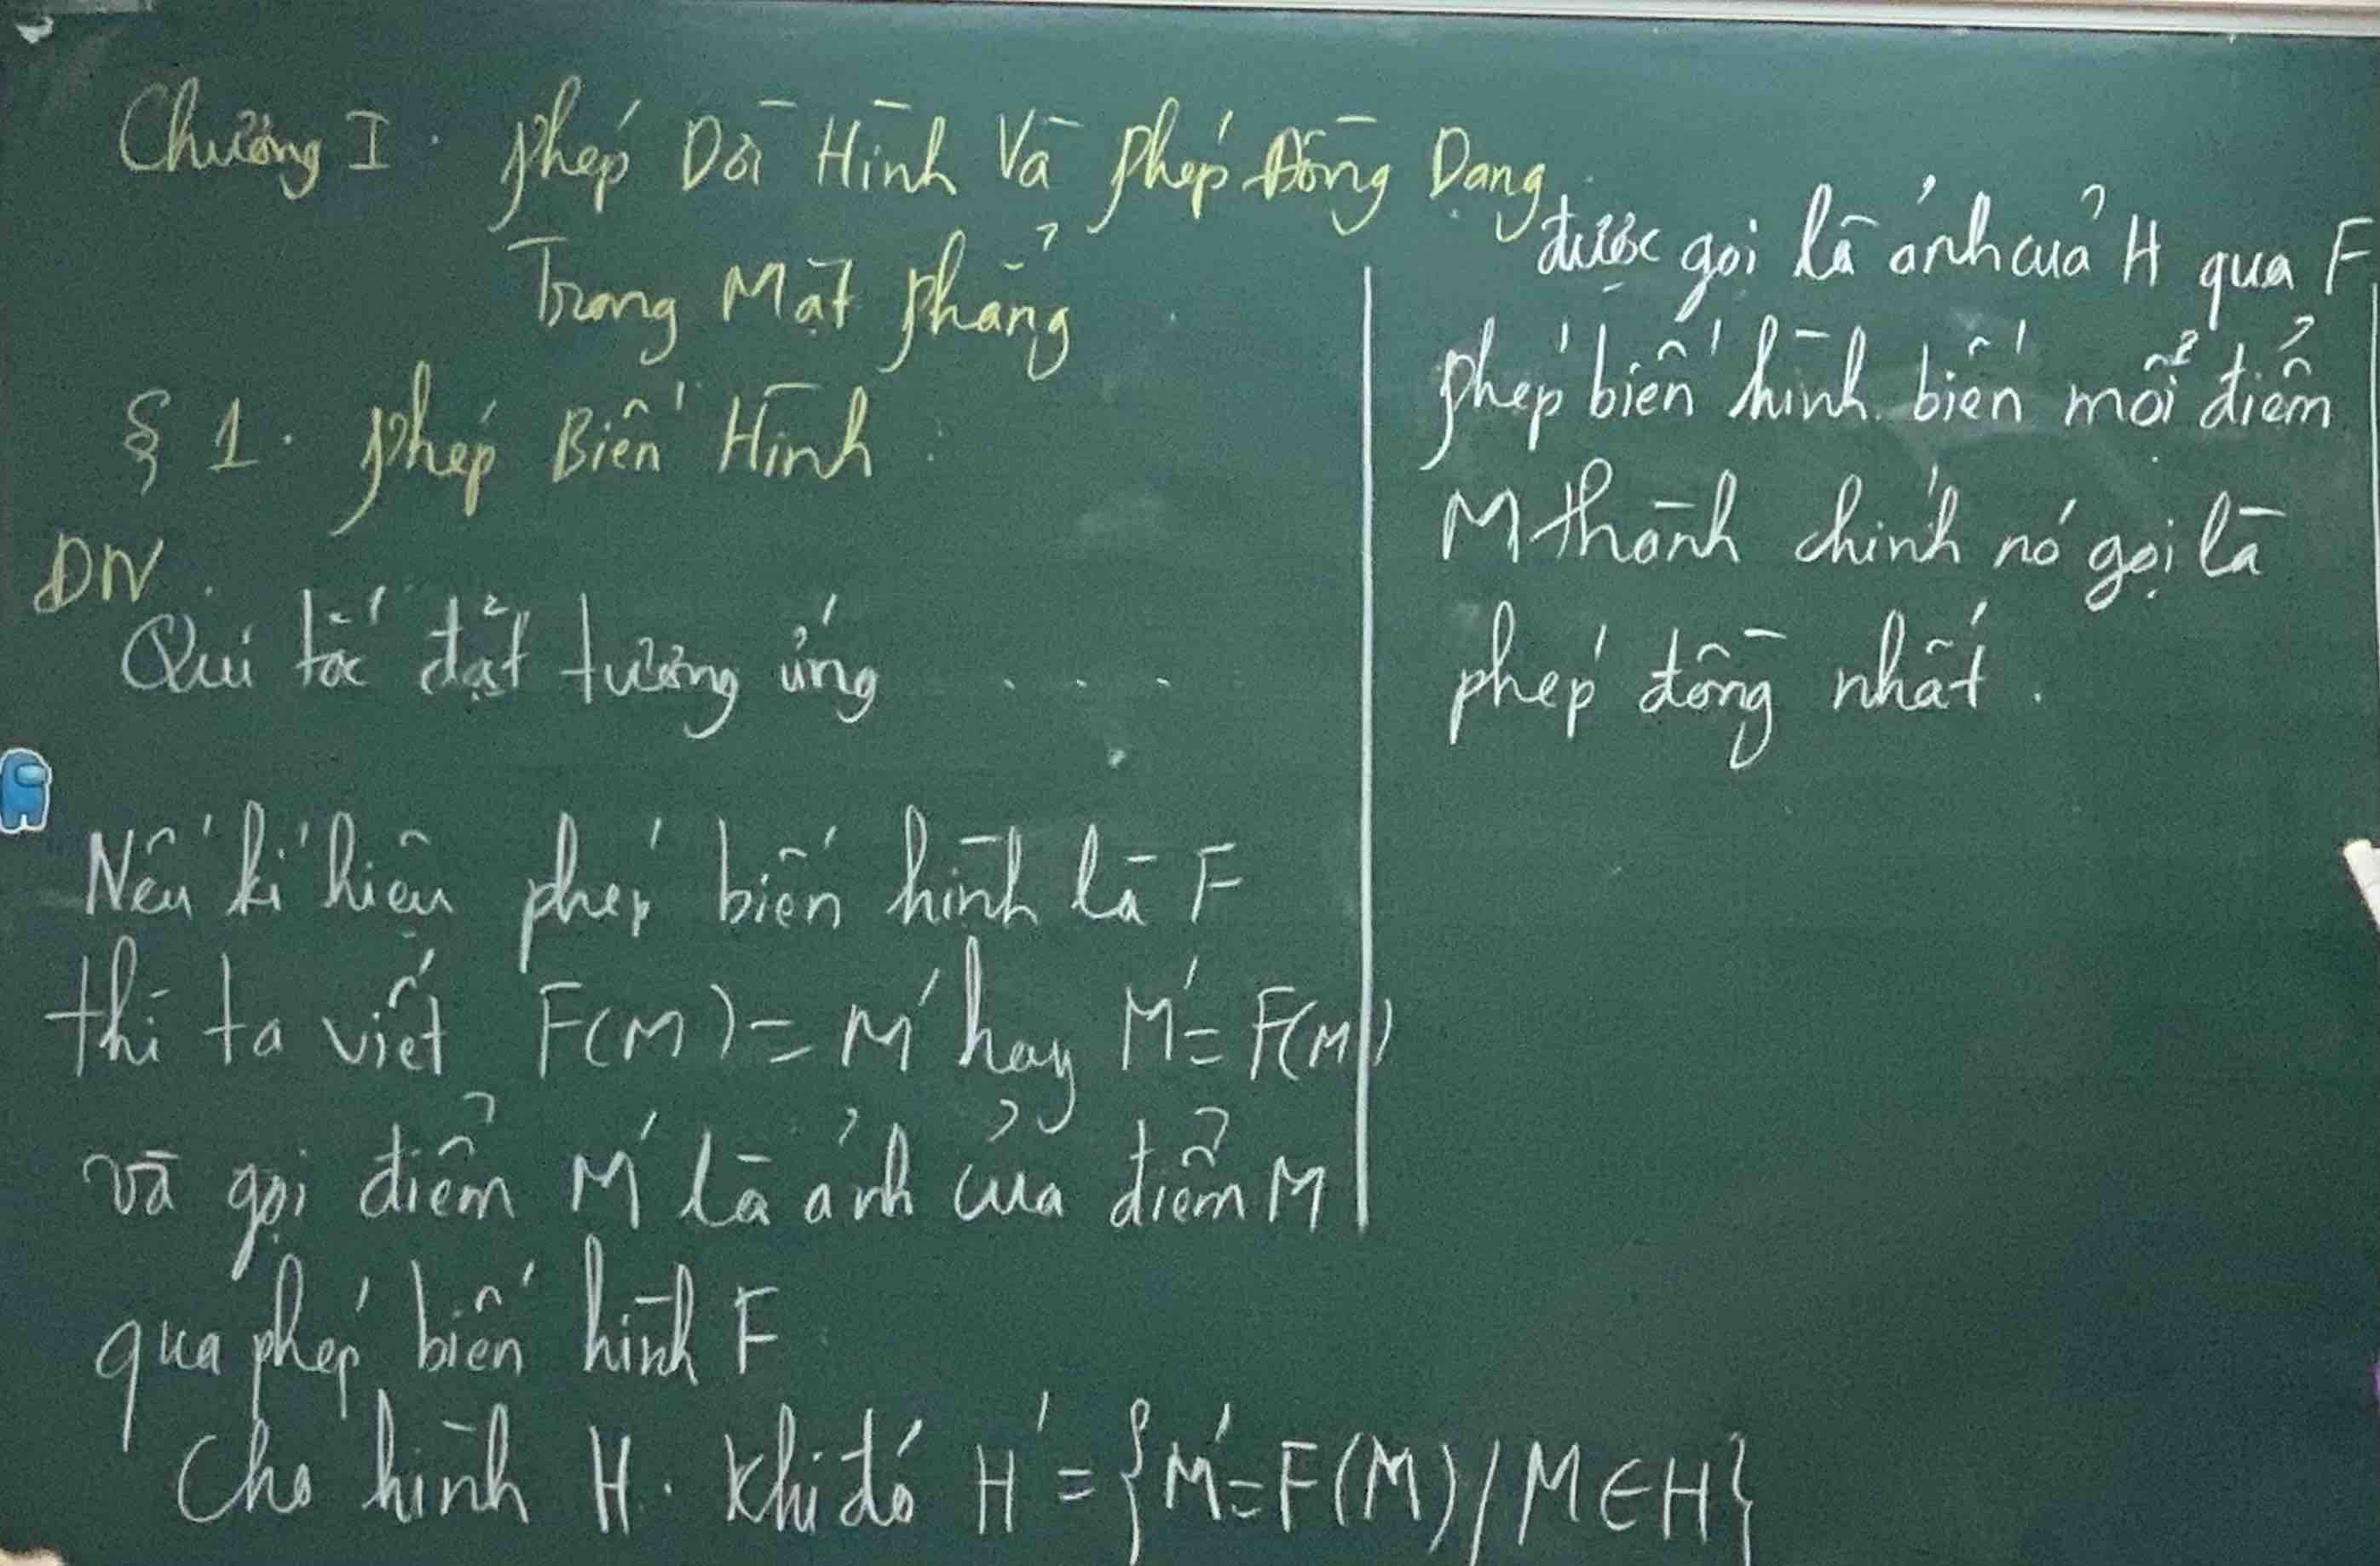 Chương I. Phép Dời Hình Và Phép Đồng Dạng
Trong Mặt Phẳng
§ 1. Phép Biến Hình
ĐN:
Qui tắc đặt tương ứng ....
Nếu kí hiệu phép biến hình là F
thì ta viết F(M) = M' hay M' = F(M)
và gọi điểm M' là ảnh của điểm M
qua phép biến hình F
Cho hình H. Khi đó H' = {M' = F(M) / M ∈ H}
được gọi là ảnh của H qua F
Phép biến hình biến mỗi điểm
M thành chính nó gọi là
phép đồng nhất.